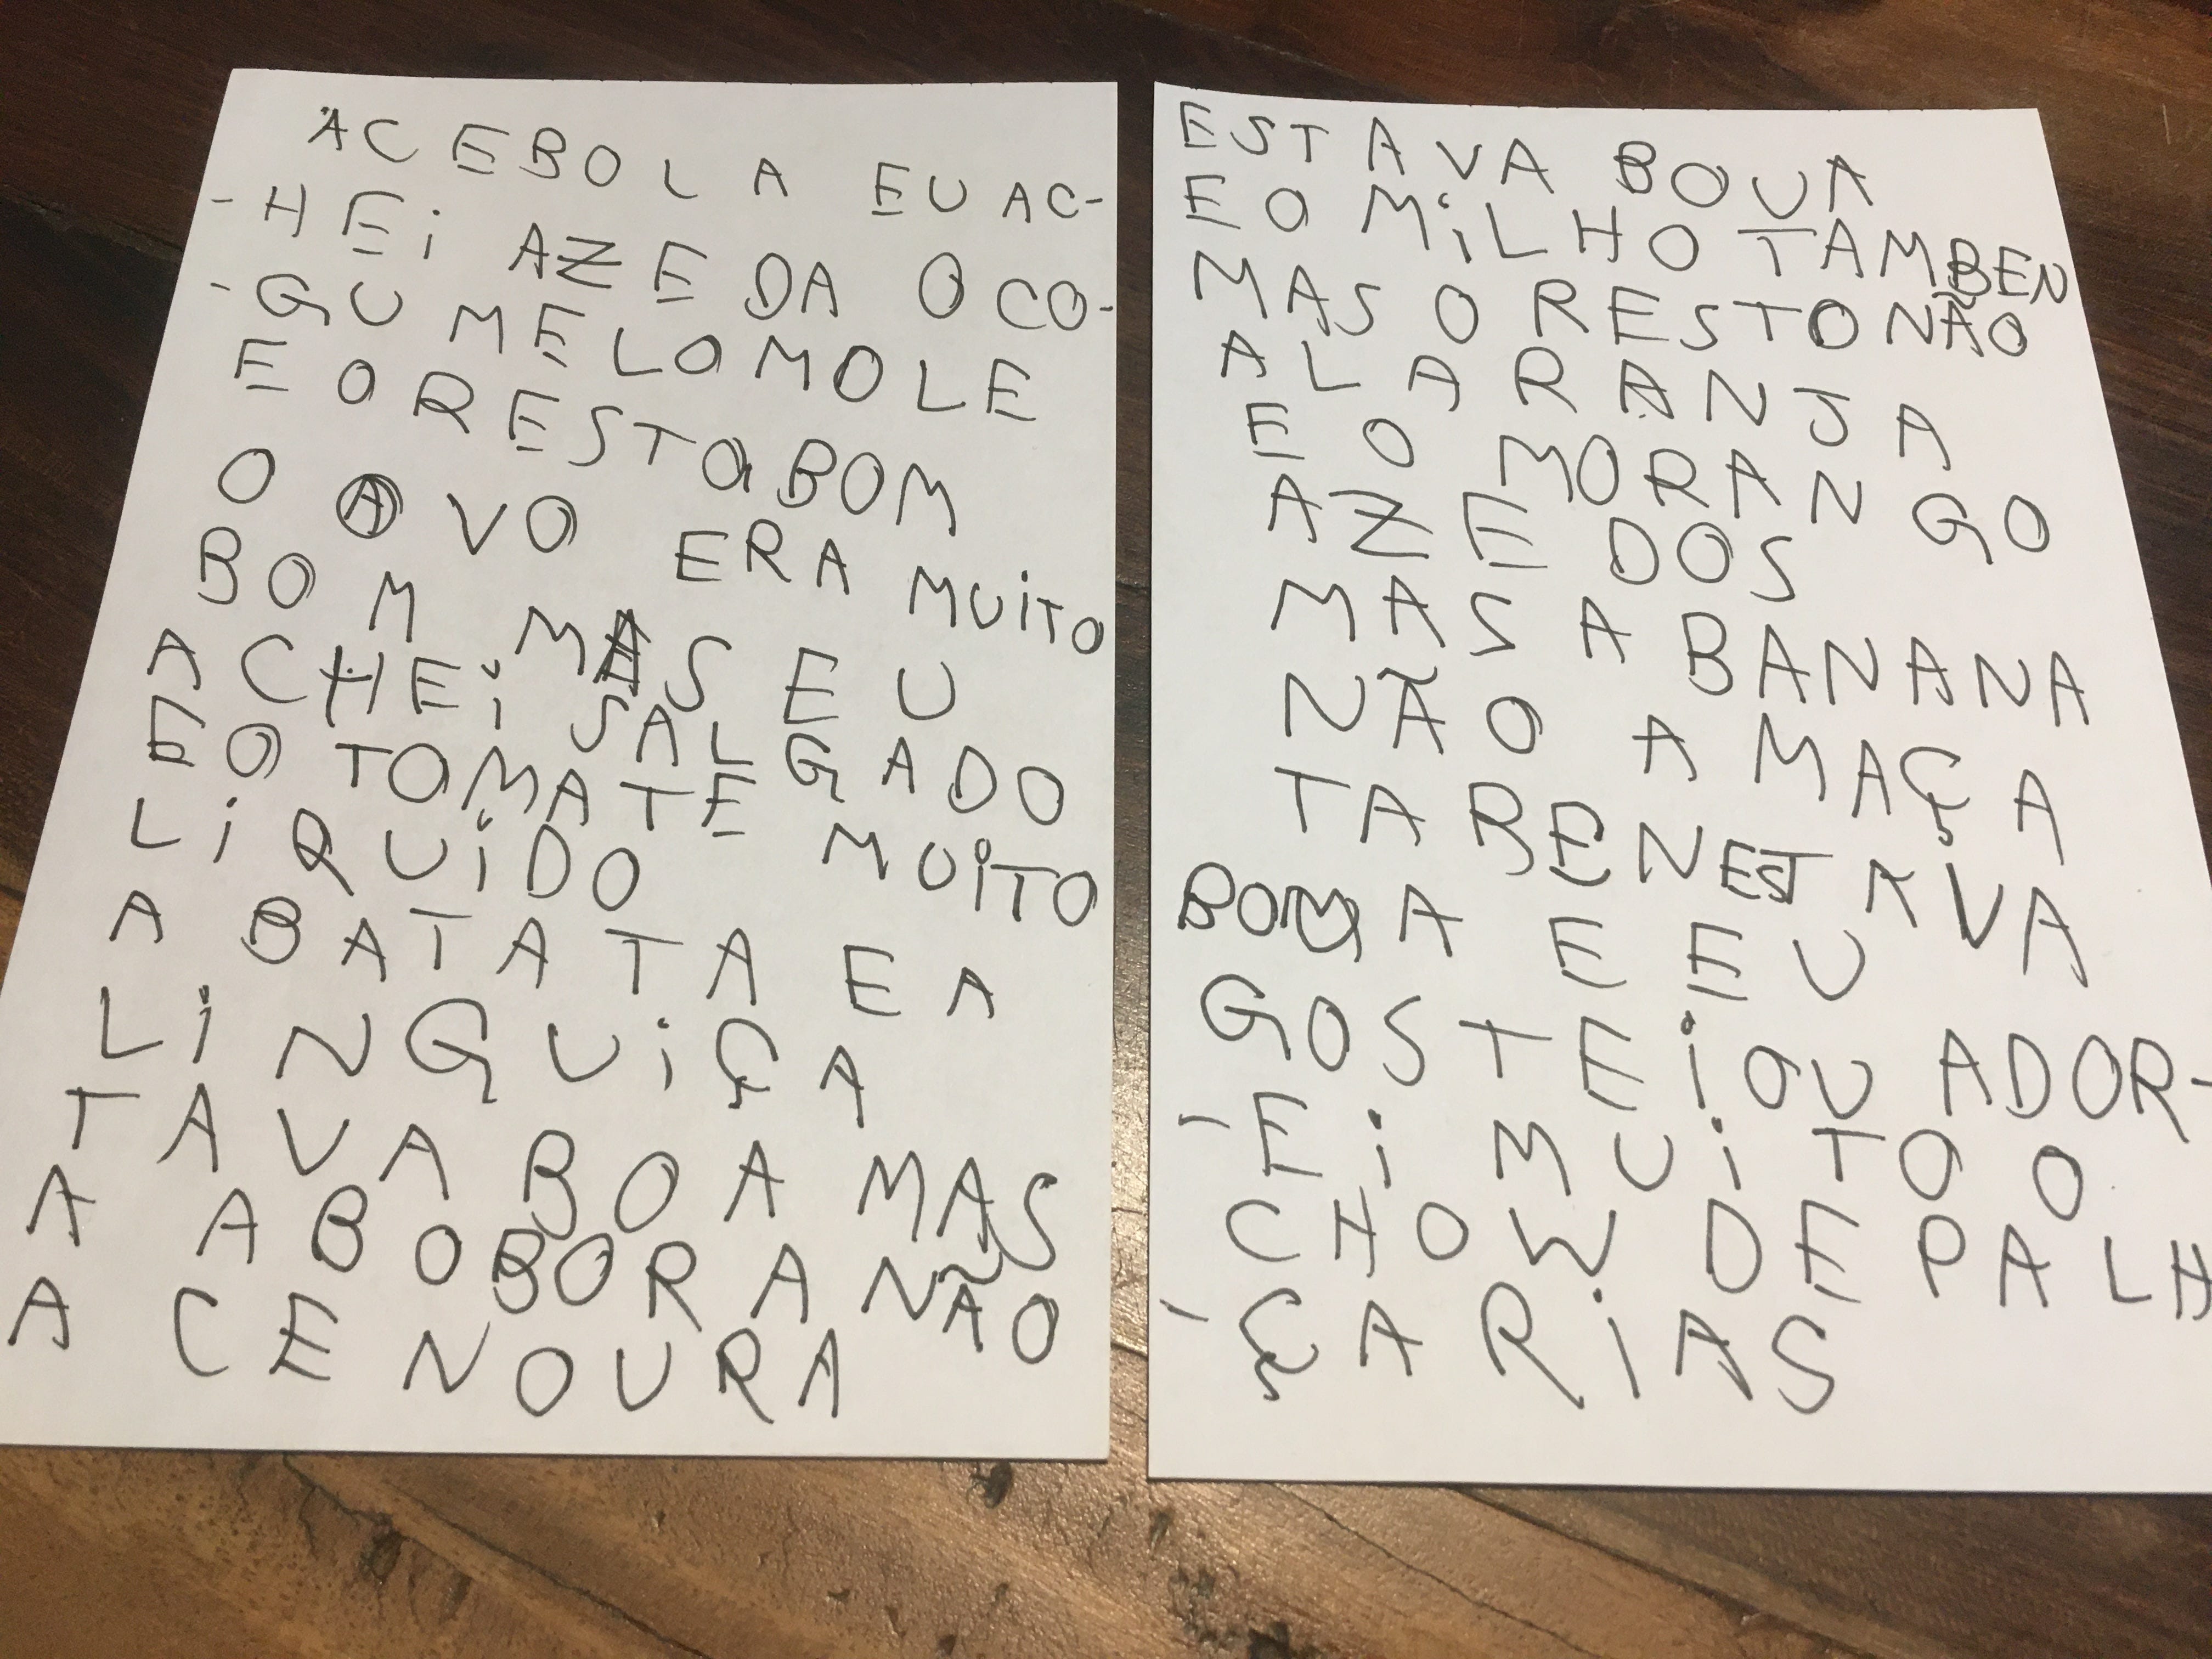 ACEBOLA EU AC-
-HEI AZEDA O CO-
-GUMELO MOLE
E O RESTO BOM
O AVO ERA MUITO
BOM MAS EU
ACHEI SALGADO
E O TOMATE MUITO
LIRQUIDO
A BATATA E A
LINGUIÇA
TAVA BOA MAS
A ABOBORA NÃO
A CENOURA
ESTAVA BOUA
E O MILHO TAMBEN
MAS O RESTO NÃO
ALARANJA
E O MORANGO
AZEDOS
MAS A BANANA
NÃO A MAÇA
TABEN ESTAVA
BOM A E EU
GOSTEI OU ADOR-
-EI MUITO O
CHOW DE PALH
-ÇARIAS